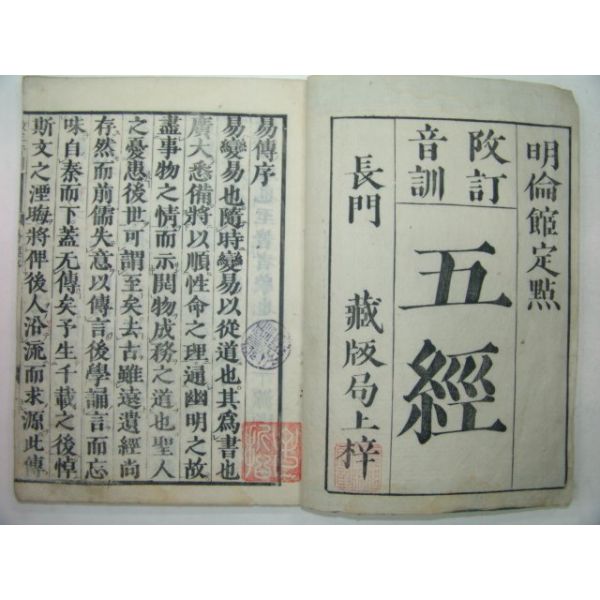 明倫館定點
五經
改訂
音訓
長門 藏版局上梓
易傳序
易變易也隨時變易以從道也其爲書也
廣大悉備將以順性命之理通幽明之故
盡事物之情而示開物成務之道也聖人
之憂患後世可謂至矣去古雖遠遺經尚
存然而前儒失意以傳言後學誦言而忘
味自秦而下蓋无傳矣予生千載之後悼
斯文之湮晦將俾後人沿流而求源此傳